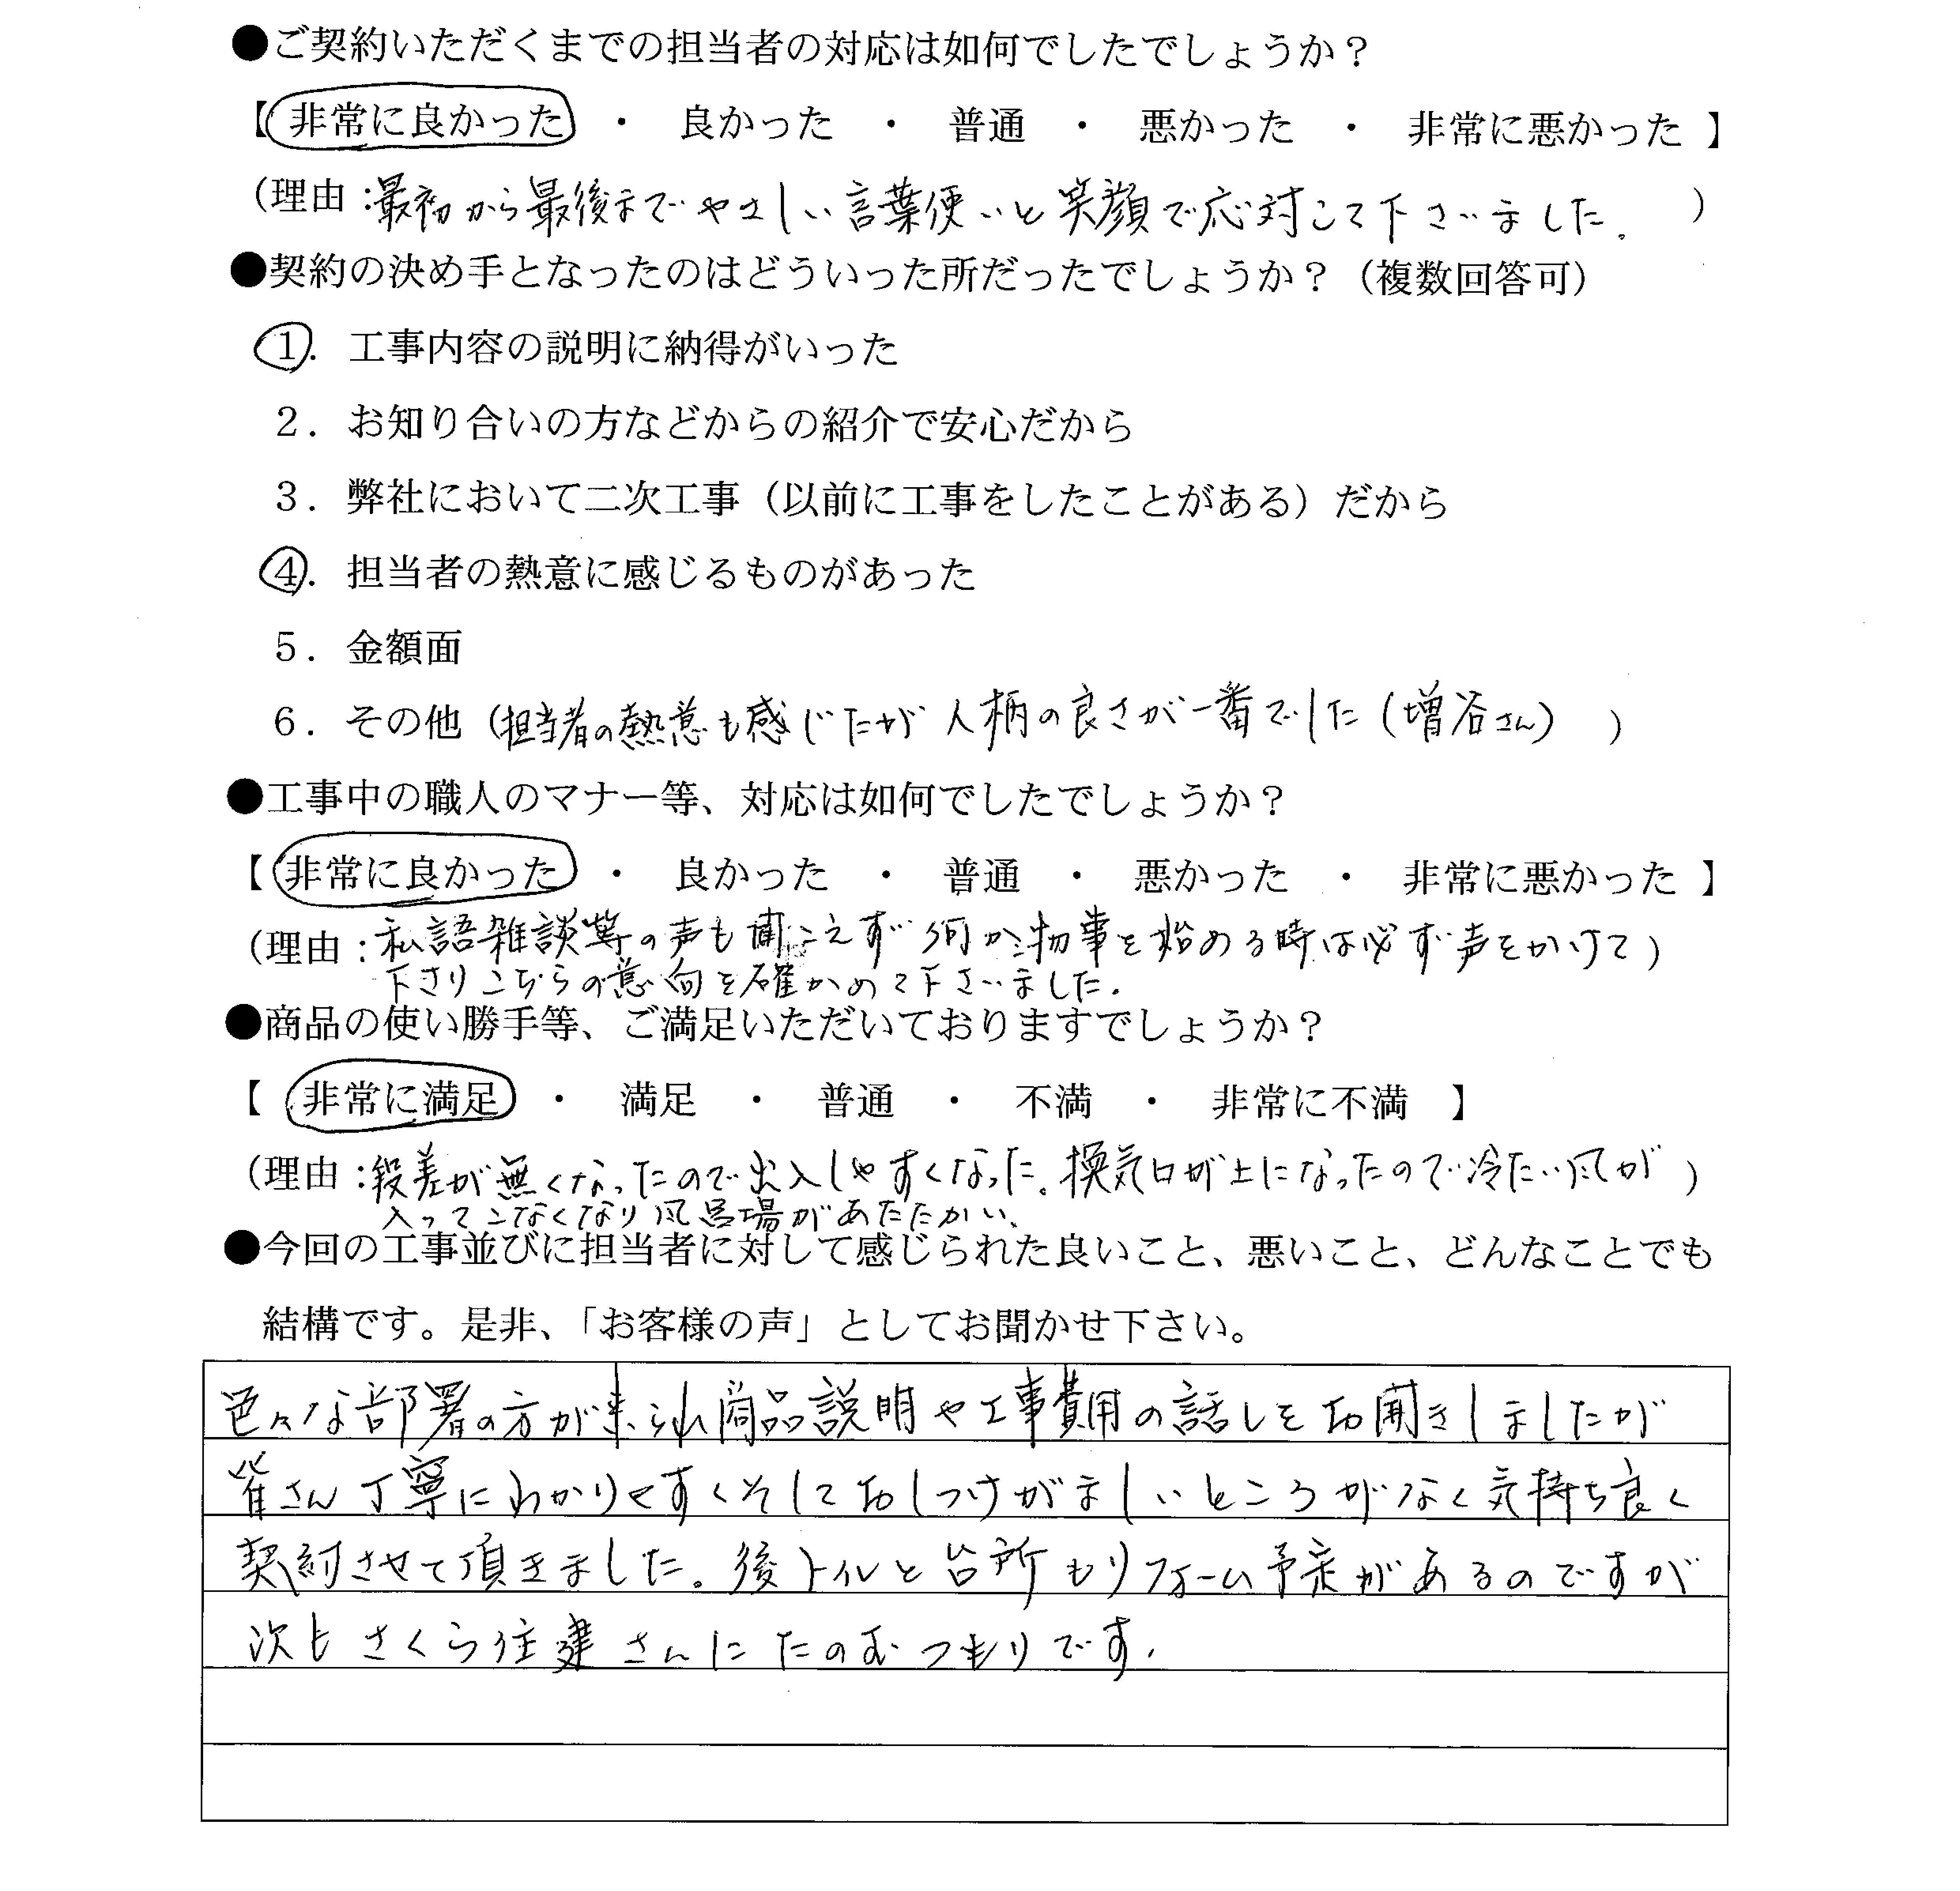 ●ご契約いただくまでの担当者の対応は如何でしたでしょうか？
【 非常に良かった ・ 良かった ・ 普通 ・ 悪かった ・ 非常に悪かった 】
（理由：最初から最後までやさしい言葉使いと笑顔で応対して下さいました。 ）
●契約の決め手となったのはどういった所だったでしょうか？（複数回答可）
１．工事内容の説明に納得がいった
２．お知り合いの方などからの紹介で安心だから
３．弊社において二次工事（以前に工事をしたことがある）だから
４．担当者の熱意に感じるものがあった
５．金額面
６．その他（担当者の熱意も感じたが人柄の良さが一番でした（増谷さん） ）
●工事中の職人のマナー等、対応は如何でしたでしょうか？
【 非常に良かった ・ 良かった ・ 普通 ・ 悪かった ・ 非常に悪かった 】
（理由：私語雑談等の声も聞こえず何か物事を始める時は必ず声をかけて）
下さりこちらの意向を確かめて下さいました.
●商品の使い勝手等、ご満足いただいておりますでしょうか？
【 非常に満足 ・ 満足 ・ 普通 ・ 不満 ・ 非常に不満 】
（理由：段差が無くなったので出入しやすくなった。換気口が上になったので冷たい風が ）
入ってこなくなり風呂場があたたかい、
●今回の工事並びに担当者に対して感じられた良いこと、悪いこと、どんなことでも
結構です。是非、「お客様の声」としてお聞かせ下さい。
色々な部署の方が来られ商品説明や工事費用の話しをお聞きしましたが
皆さん丁寧にわかりやすくそしておしつけがましいところがなく気持ち良く
契約させて頂きました。後トイレと台所もリフォーム予定があるのですが
次もさくら住建さんにたのむつもりです.